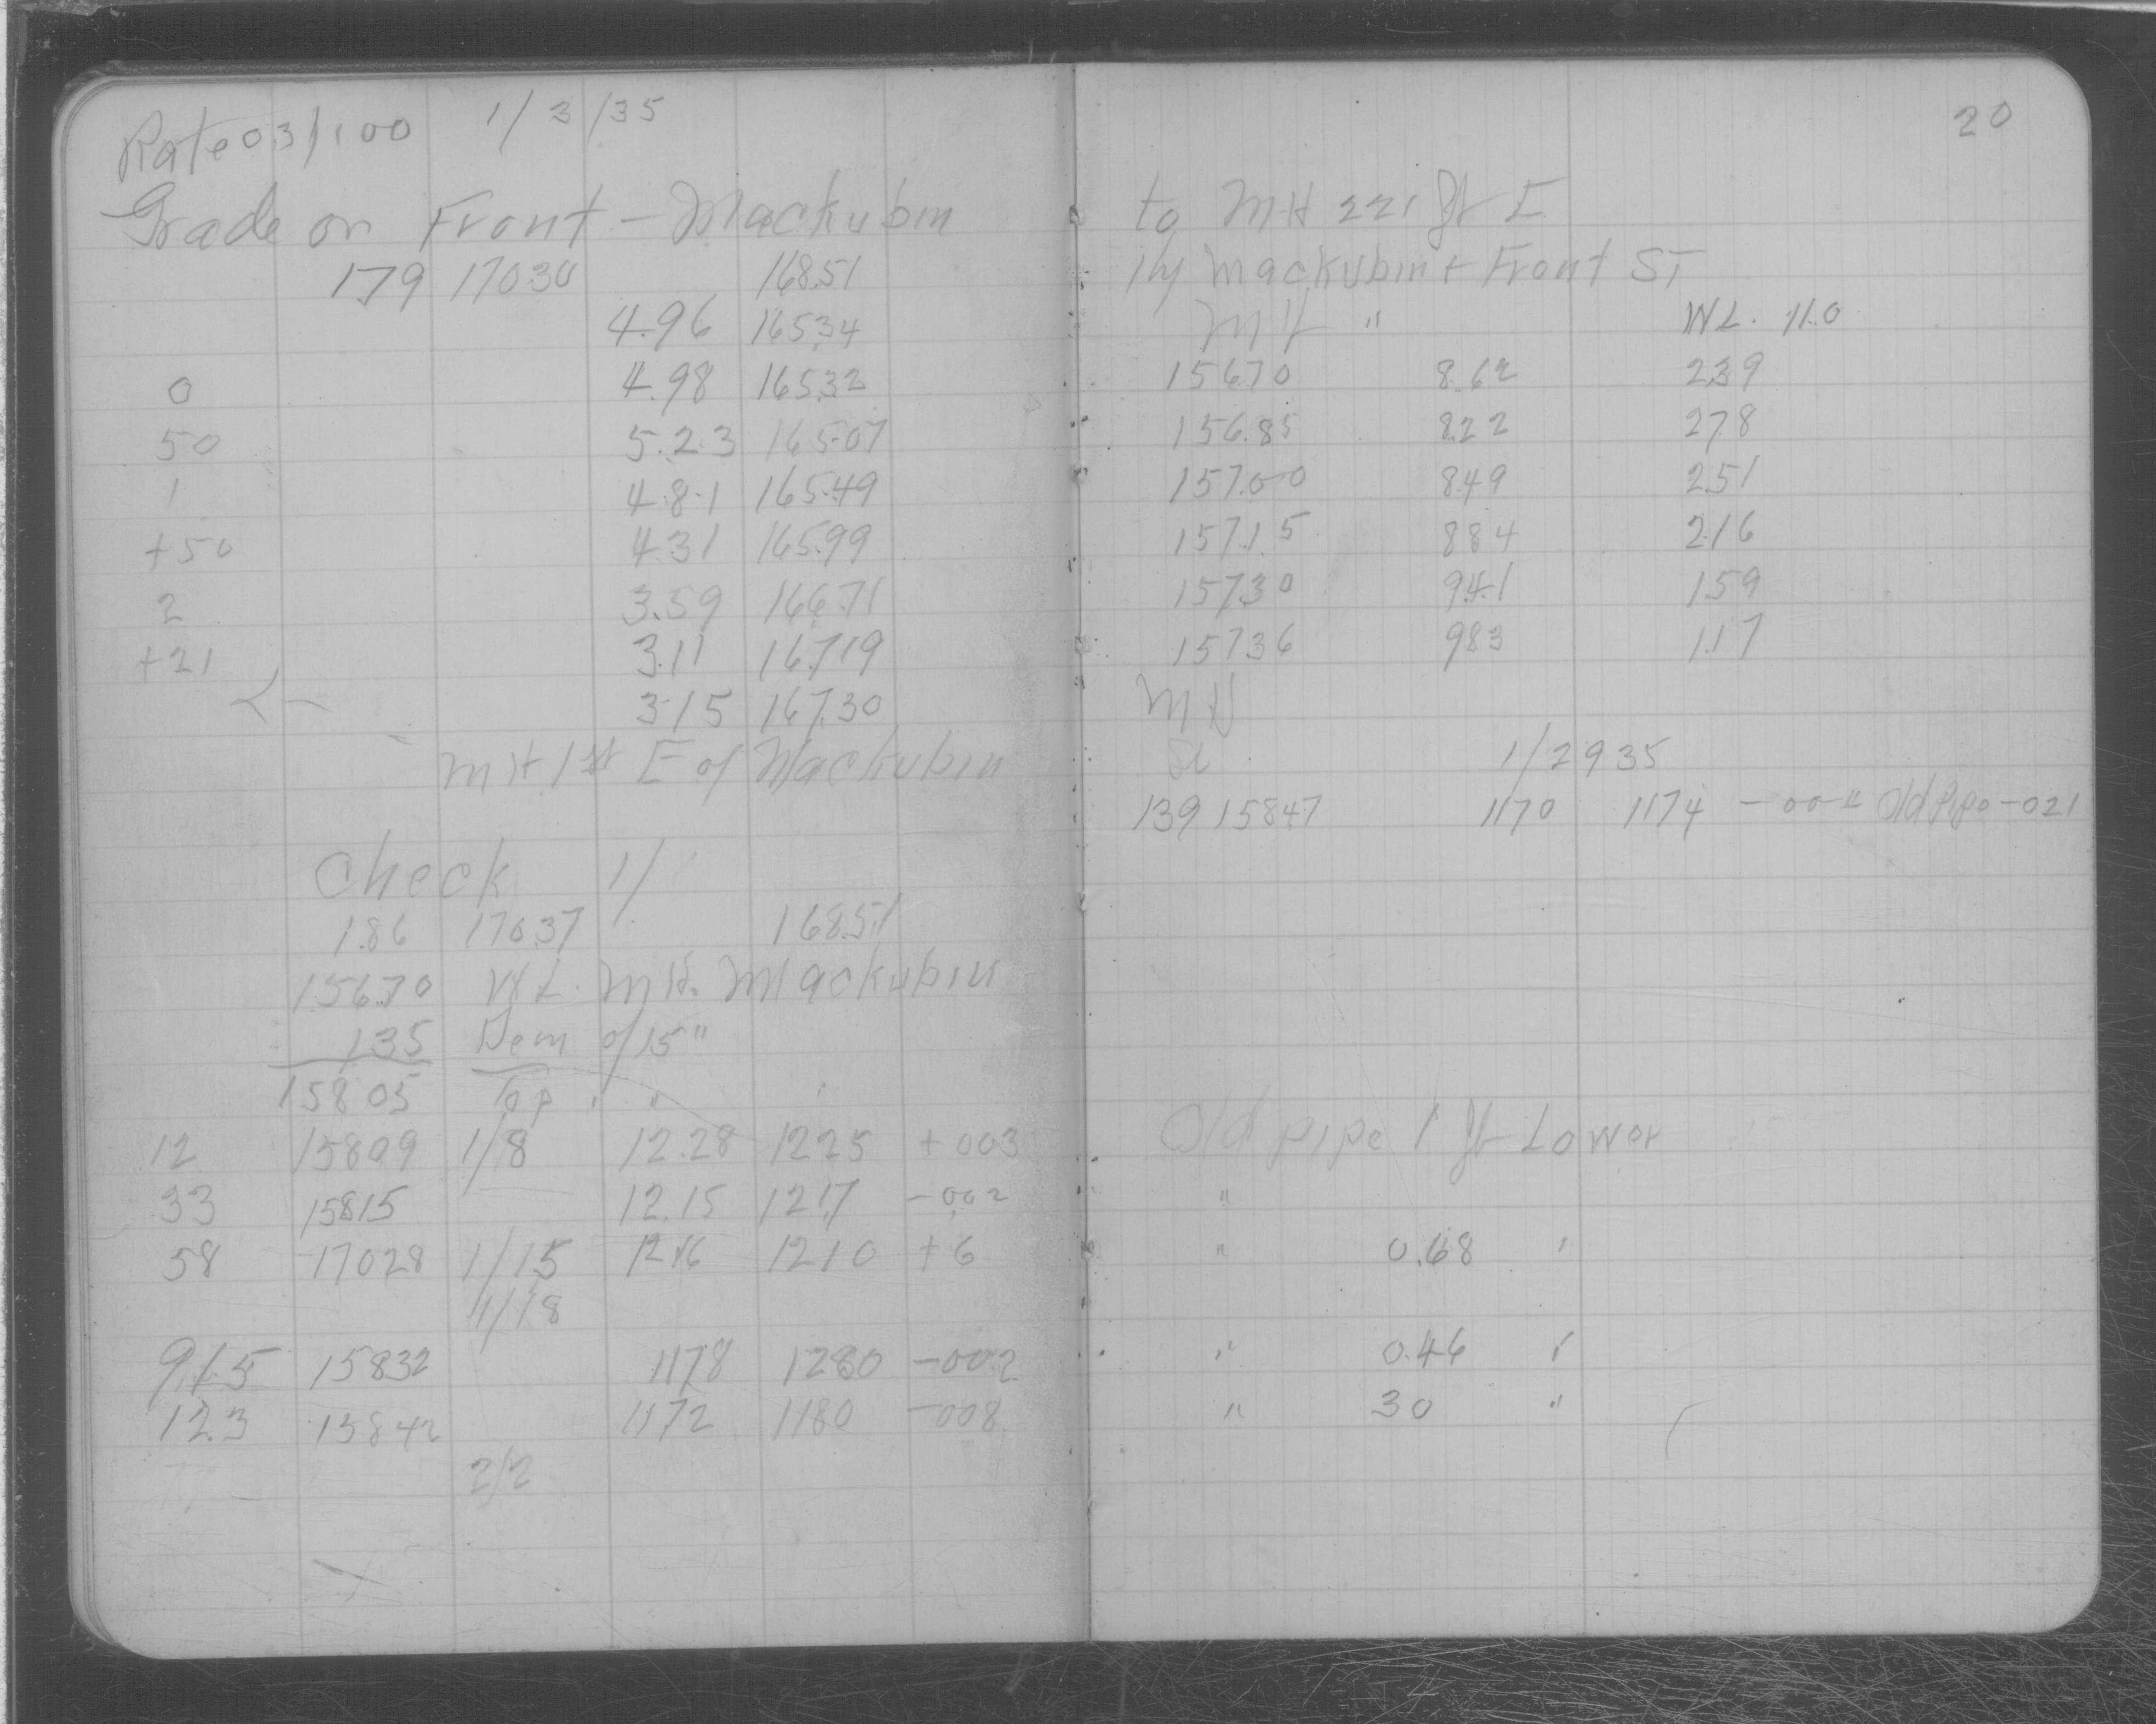 Rate 03/100 1/3/35
Grade on Front - Mackubin
179 170.30 168.51
4.96 165.34
0 4.98 165.32
50 5.23 165.07
1 4.81 165.49
+50 4.31 165.99
2 3.59 166.71
+21 3.11 167.19
3.15 167.30
MH 1st E of Mackubin
Check 1/
1.86 170.37 168.51
156.70 WL. MH. Mackubin
1.35 of 15"
158 05 Top " "
12 158 09 1/8 12.28 12 25 + 003
33 158 15 12.15 12 17 - 002
58 170 28 1/15 12 16 12 10 + 6
1/18
91.5 158 32 11 78 12 80 - 002
123 158 42 11 72 11 80 - 008
2/2
20
to MH 221 ft E
Hy Mackubin + Front ST
MH " WL. 11.0
156 70 8.62 2.39
156.85 8.22 2.78
157.00 8.49 2.51
157.15 8 84 2.16
157.30 9.41 1.59
157.36 9.83 1.17
MH
1/29 35
139 158 47 11 70 11 74 - 00 4 Old Pipe - 021
Old pipe 1 ft Lower
"
" 0.68 "
" 0.46 "
" 30 "